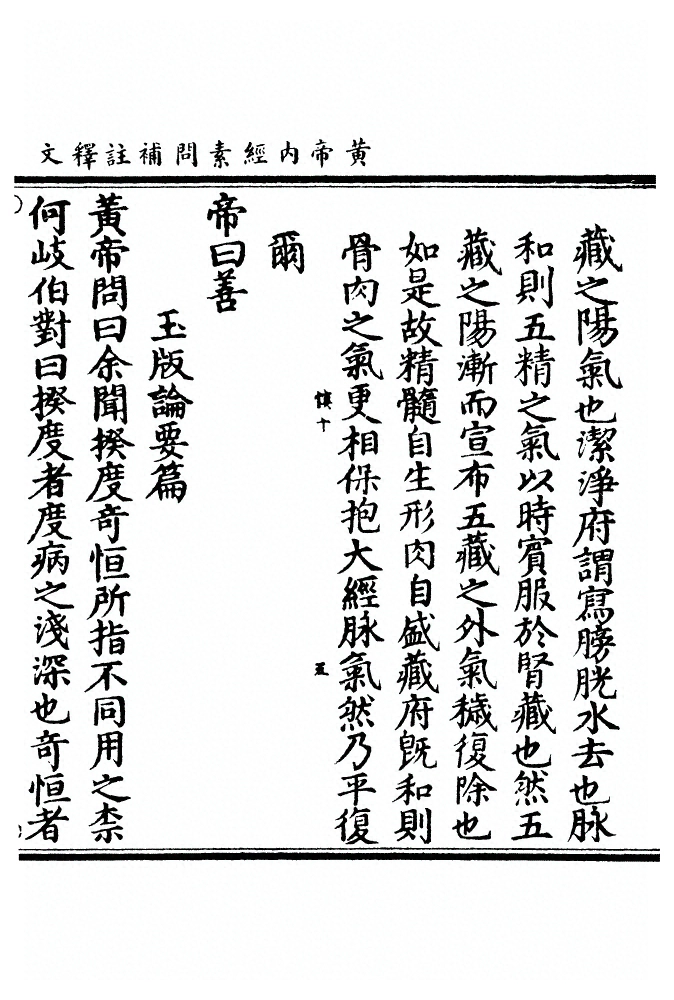 黃帝內經素問補註釋文
藏之陽氣也潔淨府謂寫膀胱水去也脉
和則五精之氣以時賓服於腎藏也然五
藏之陽漸而宣布五藏之外氣穢復除也
如是故精髓自生形肉自盛藏府旣和則
骨肉之氣更相保抱大經脉氣然乃平復
慎十
五
爾
帝曰善
玉版論要篇
黃帝問曰余聞揆度奇恒所指不同用之柰
何岐伯對曰揆度者度病之淺深也奇恒者